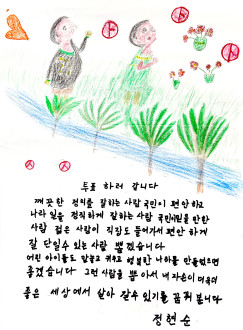 투표 하러 갑니다
깨끗한 정치를 잘하는 사람 국민이 편안하고
나라 일을 정직하게 잘하는 사람 국민
젊은 사람이 직장도 들어가서 편안 하게
잘 단일수 있는 사람 뽑겠습니다
어린 아이들도 많놓고 키우고 행복한 나라를 만들었으면
좋겠습니다 그런 사람을 뽑아서 내 자손이 더욱더
좋은 세상에서 살아 갈수 있기를 꿈꿔 봅니다
정현순